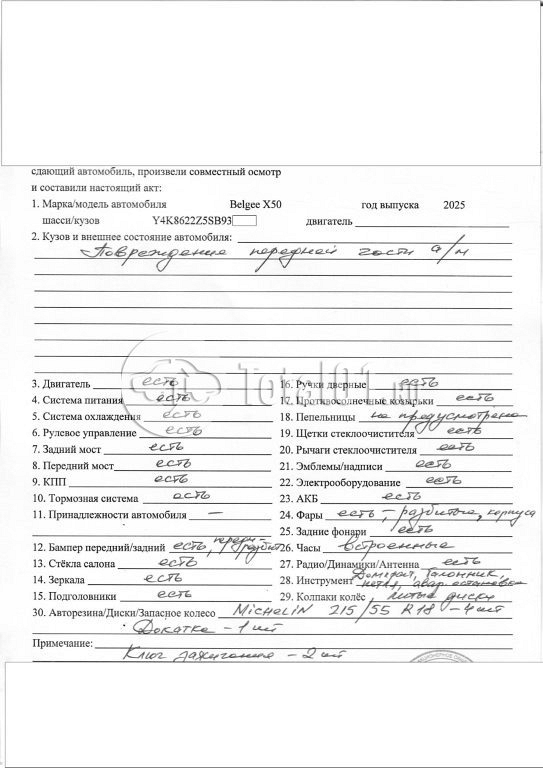 сдающий автомобиль, произвели совместный осмотр
и составили настоящий акт:
1. Марка/модель автомобиля Belgee X50 год выпуска 2025
шасси/кузов Y4K8622Z5SB93 двигатель
2. Кузов и внешнее состояние автомобиля:
Повреждение передней части а/м
3. Двигатель есть 16. Ручки дверные есть
4. Система питания есть 17. Противосолнечные козырьки есть
5. Система охлаждения есть 18. Пепельницы не предусмотрена
6. Рулевое управление есть 19. Щетки стеклоочистителя есть
7. Задний мост есть 20. Рычаги стеклоочистителя есть
8. Передний мост есть 21. Эмблемы/надписи есть
9. КПП есть 22. Электрооборудование есть
10. Тормозная система есть 23. АКБ есть
11. Принадлежности автомобиля — 24. Фары есть, – разбитые, корпуса
25. Задние фонари есть
12. Бампер передний/задний есть, 26. Часы встроенные
13. Стёкла салона есть 27. Радио/Динамики/Антенна есть
14. Зеркала есть 28. Инструмент Домкрат, балонник, петля, авар. остановка
15. Подголовники есть 29. Колпаки колёс, литые диски
30. Авторезина/Диски/Запасное колесо MICHELIN 215/55 R18 – 4 шт
Докатка – 1 шт
Примечание:
Ключ зажигания – 2 шт
Total01.ru